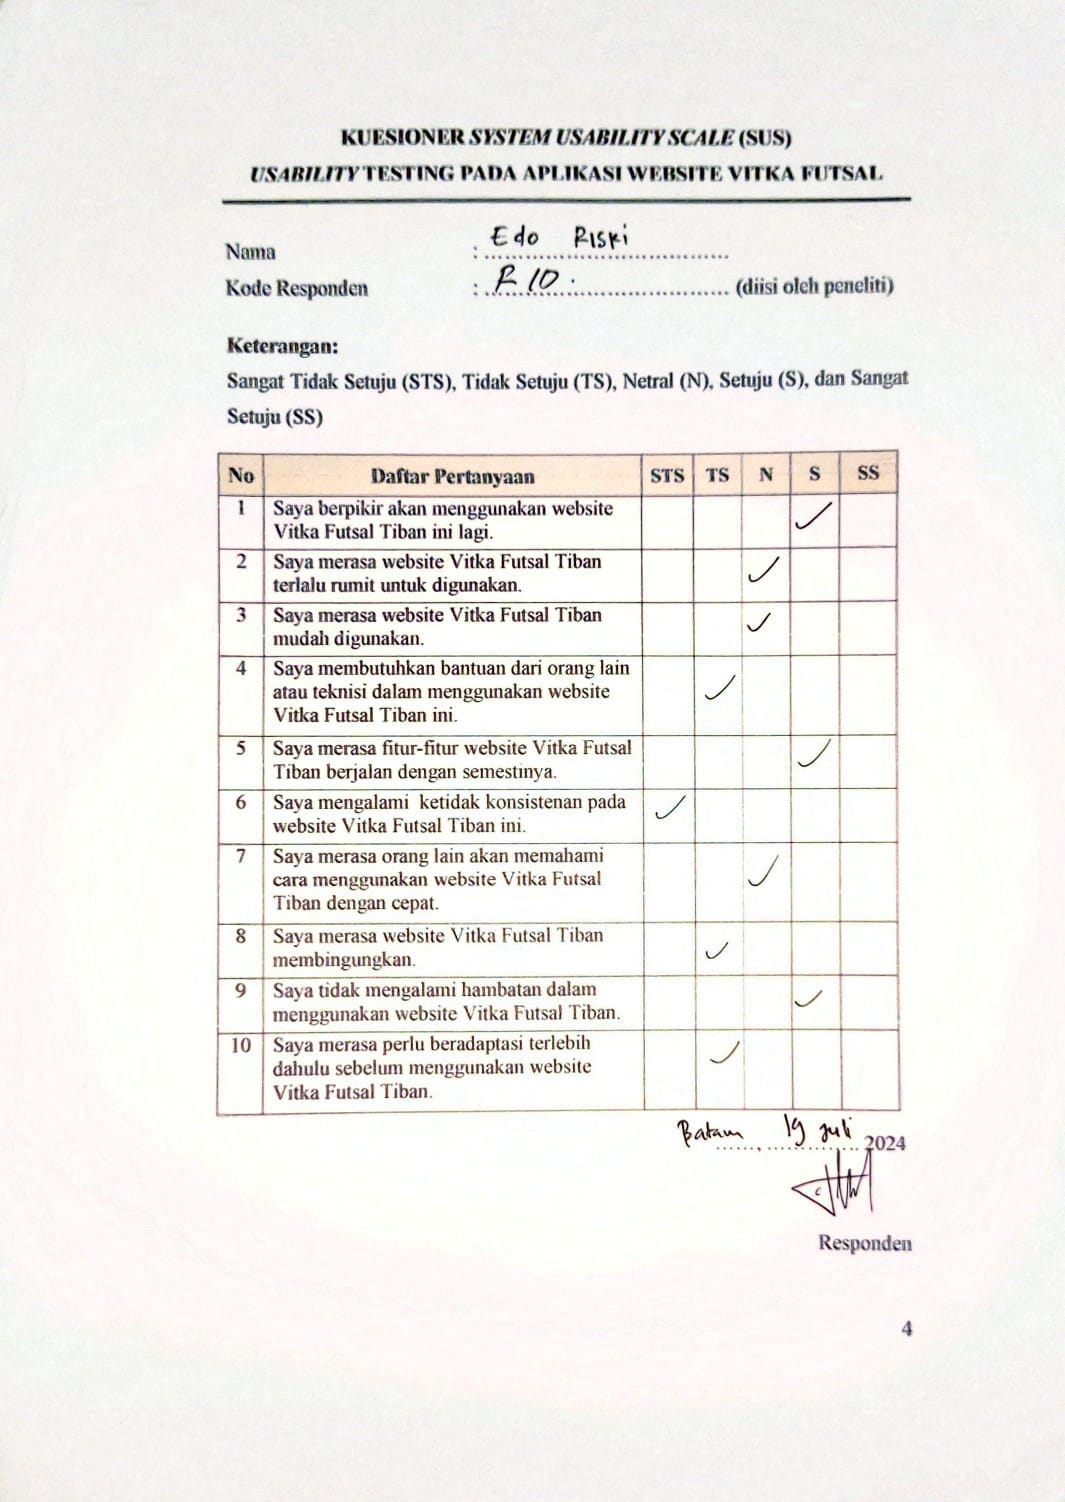 KUESIONER SYSTEM USABILITY SCALE (SUS)
USABILITY TESTING PADA APLIKASI WEBSITE VITKA FUTSAL
Nama : Edo Riski
Kode Responden : R 10 . (diisi oleh peneliti)
Keterangan:
Sangat Tidak Setuju (STS), Tidak Setuju (TS), Netral (N), Setuju (S), dan Sangat
Setuju (SS)
No Daftar Pertanyaan STS TS N S SS
1 Saya berpikir akan menggunakan website ✓
Vitka Futsal Tiban ini lagi.
2 Saya merasa website Vitka Futsal Tiban ✓
terlalu rumit untuk digunakan.
3 Saya merasa website Vitka Futsal Tiban ✓
mudah digunakan.
4 Saya membutuhkan bantuan dari orang lain ✓
atau teknisi dalam menggunakan website
Vitka Futsal Tiban ini.
5 Saya merasa fitur-fitur website Vitka Futsal ✓
Tiban berjalan dengan semestinya.
6 Saya mengalami ketidak konsistenan pada ✓
website Vitka Futsal Tiban ini.
7 Saya merasa orang lain akan memahami ✓
cara menggunakan website Vitka Futsal
Tiban dengan cepat.
8 Saya merasa website Vitka Futsal Tiban ✓
membingungkan.
9 Saya tidak mengalami hambatan dalam ✓
menggunakan website Vitka Futsal Tiban.
10 Saya merasa perlu beradaptasi terlebih ✓
dahulu sebelum menggunakan website
Vitka Futsal Tiban.
Batam, 19 Juli 2024
Responden
4